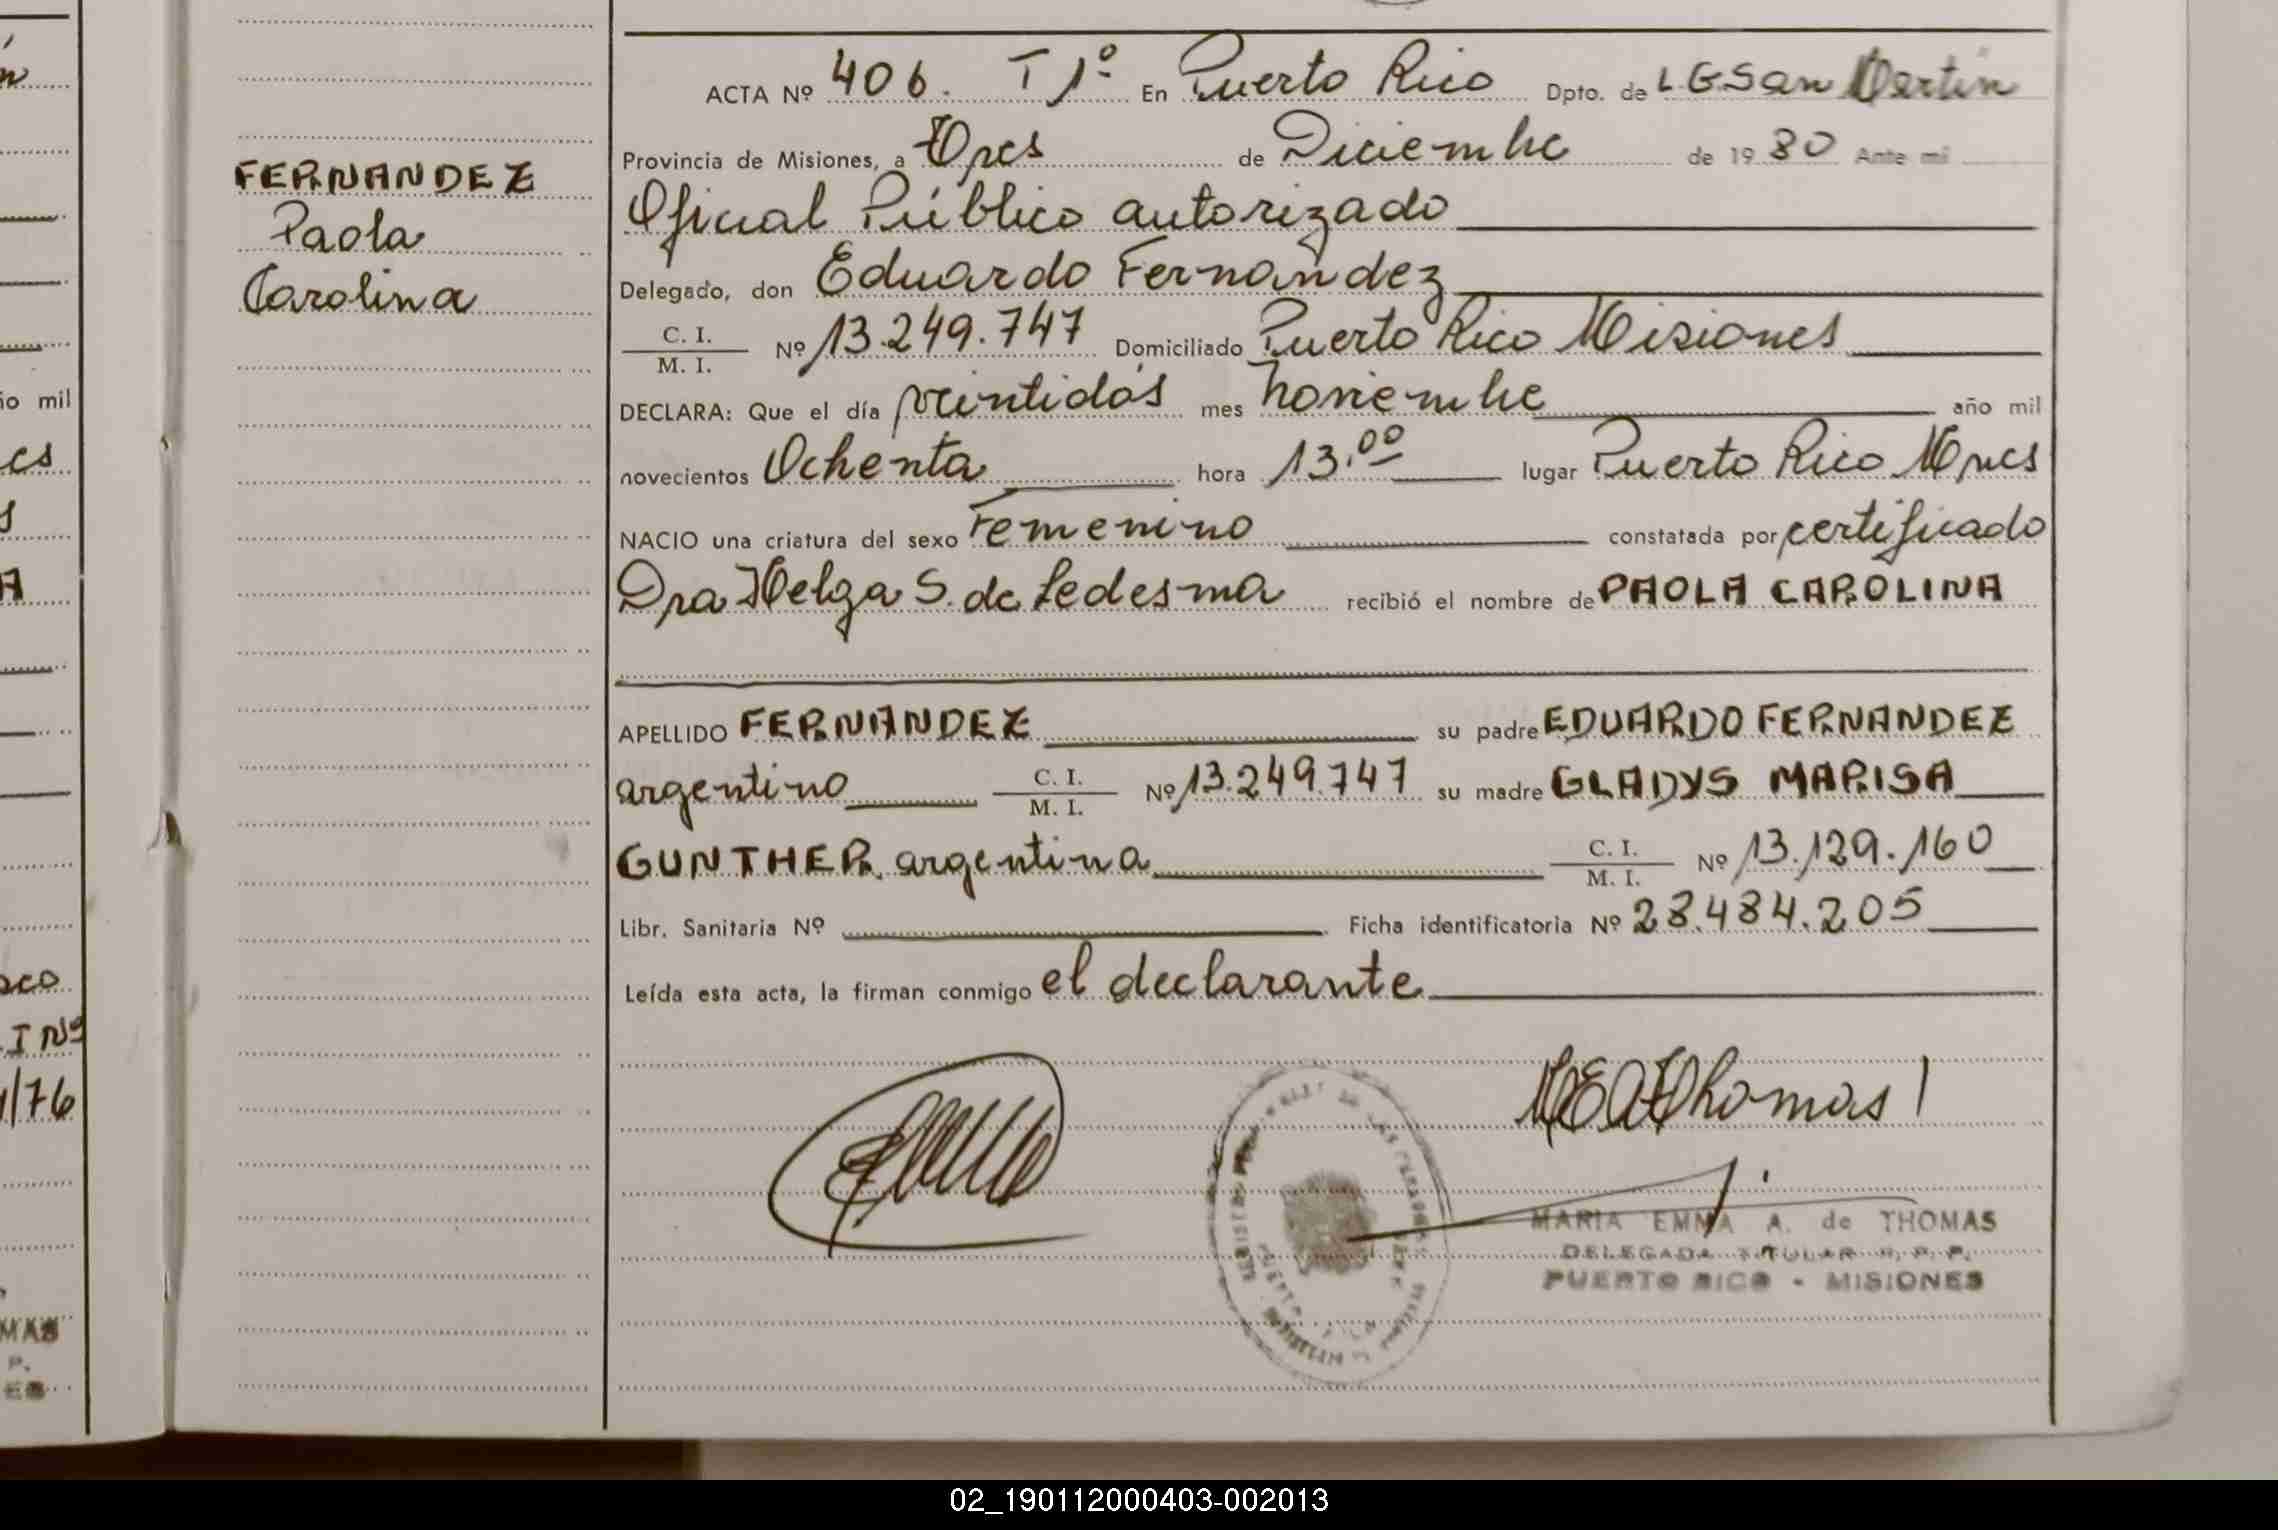 FERNANDEZ
Paola
Carolina
ACTA Nº 406. T 1º En Puerto Rico Dpto. de L G San Martin
Provincia de Misiones, a Tres de Diciembre de 1980 Ante mi
Oficial Público autorizado
Delegado, don Eduardo Fernandez
C. I.
M. I. Nº 13.249.747 Domiciliado Puerto Rico Misiones
DECLARA: Que el día veintidós mes noviembre año mil
novecientos Ochenta hora 13.00 lugar Puerto Rico Mnes
NACIO una criatura del sexo Femenino constatada por certificado
Dra Helga S. de Ledesma recibió el nombre de PAOLA CAROLINA
APELLIDO FERNANDEZ su padre EDUARDO FERNANDEZ
argentino C. I. M. I. Nº 13.249.747 su madre GLADYS MARISA
GUNTHER, argentina C. I. M. I. Nº 13.129.160
Libr. Sanitaria Nº Ficha identificatoria Nº 28.484.205
Leída esta acta, la firman conmigo el declarante
MEA Thomas
MARIA EMMA A. de THOMAS
DELEGADA TITULAR R. P. P.
PUERTO RICO - MISIONES
io mil
I Nº
/76
MAS
P.
ES
02_190112000403-002013